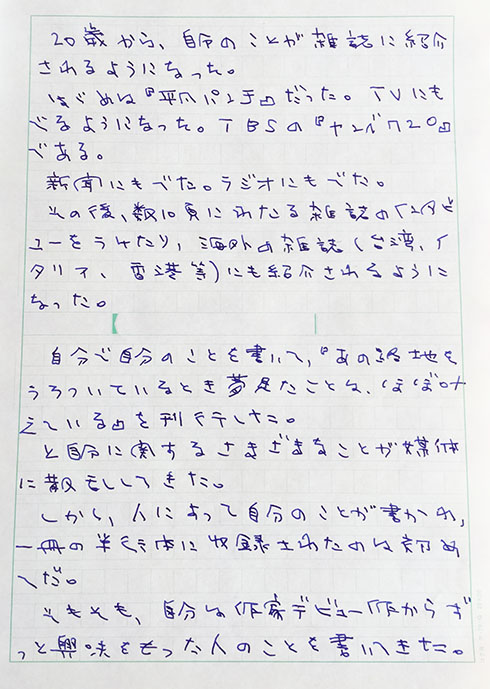 20歳から、自分のことが雑誌に紹介
されるようになった。
はじめは『平凡パンチ』だった。TVにも
でるようになった。TBSの『ヤング720』
である。
新聞にもでた。ラジオにもでた。
その後、数10頁にわたる雑誌のインタビ
ューをうけたり、海外の雑誌(台湾、イ
タリア、香港等)にも紹介されるように
なった。
自分で自分のことを書いて、『あの路地を
うろついているとき夢見たことは、ほぼ叶
えている』を刊行した。
と自分に関するさまざまなことが媒体
に散見してきた。
しかし、人によって自分のことが書かれ、
一冊の単行本に収録されたのは初め
てだ。
そもそも、自分は作家デビュー作からず
っと興味をもった人のことを書いてきた。